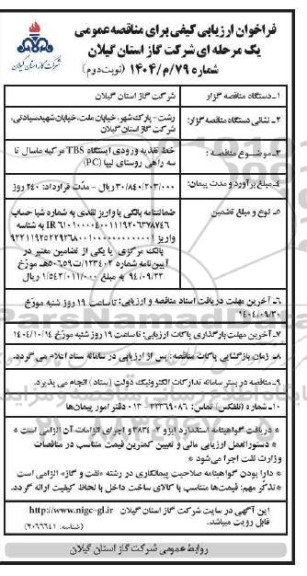 فراخوان ارزیابی کیفی برای مناقصه عمومی
یک مرحله ای شرکت گاز استان گیلان
شماره ۷۹/م/۱۴۰۴ (نوبت دوم)
شرکت گاز استان گیلان
۱- دستگاه مناقصه گزار
شرکت گاز استان گیلان
۲- نشانی دستگاه مناقصه گزار:
رشت- پارک شهر، خیابان ملت، خیابان شهید سیادتی، شرکت گاز استان گیلان
۳- موضوع مناقصه:
خط تغذیه ورودی ایستگاه TBS مرکیه ماسال تا سه راهی روستای لیپا (PC)
۴- مبلغ برآورد و مدت پیمان:
۳۰/۸۴۰/۲۰۳/۰۰۰ ریال - مدت قرارداد: ۲۴۰ روز
۵- نوع و مبلغ تضمین
ضمانتنامه بانکی یا واریز نقدی به شماره شبا حساب
به شناسه
واریز
بانک مرکزی یا یکی از تضامین معتبر در
آیین نامه شماره ۱۲۳۴۰۲/ت۵۰۶۵۹هـ مورخ
۹۴/۰۹/۲۲ به مبلغ ۱/۵۴۳/۰۱۱/۰۰۰ ریال
۶- آخرین مهلت دریافت اسناد مناقصه و ارزیابی: تا ساعت ۱۹ روز شنبه مورخ
۷- آخرین مهلت بارگذاری پاکات ارزیابی: تا ساعت ۱۹ روز شنبه مورخ ۱۴۰۴/۱۰/۱۴
۸- زمان بازگشایی پاکات مناقصه: پس از ارزیابی در سامانه ستاد اعلام می گردد.
۹- مناقصه در بستر سامانه تدارکات الکترونیک دولت (ستاد) انجام می پذیرد.
۱۰- شماره (تلفکس) تماس: ۳۳۳۶۹۰۸۶-۰۱۳ دفتر امور پیمان ها
* دریافت گواهینامه استاندارد ایزو ۳۸۳۴-۲ و اجرای الزامات آن الزامی است *
* دستورالعمل ارزیابی مالی و تعیین کمترین قیمت متناسب در مناقصات
وزارت نفت اجرا می شود *
* دارا بودن گواهینامه صلاحیت پیمانکاری در رشته «نفت و گاز» الزامی است
* تذکر مهم: قیمت ها متناسب با کالای ساخت داخل با لحاظ کیفیت ارائه گردد.
این آگهی در سایت شرکت گاز استان گیلان http://www.nigc-gl.ir
قابل رویت میباشد.
(شناسه: ۲۰۶۶۶۴۱)
روابط عمومی شرکت گاز استان گیلان